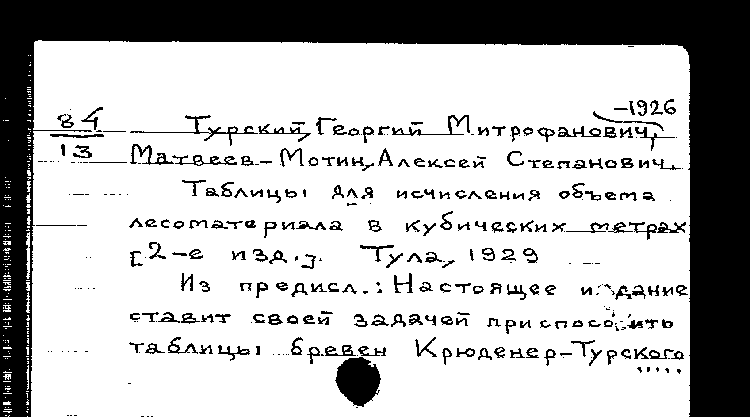 –1926
84
13
Турский, Георгий Митрофанович,
Матвеев-Мотин, Алексей Степанович.
Таблицы для исчисления объема
лесоматериала в кубических метрах
[2-е изд.]. Тула, 1929
Из предисл.: Настоящее издание
ставит своей задачей приспособить
таблицы бревен Крюденер-Турского
.....